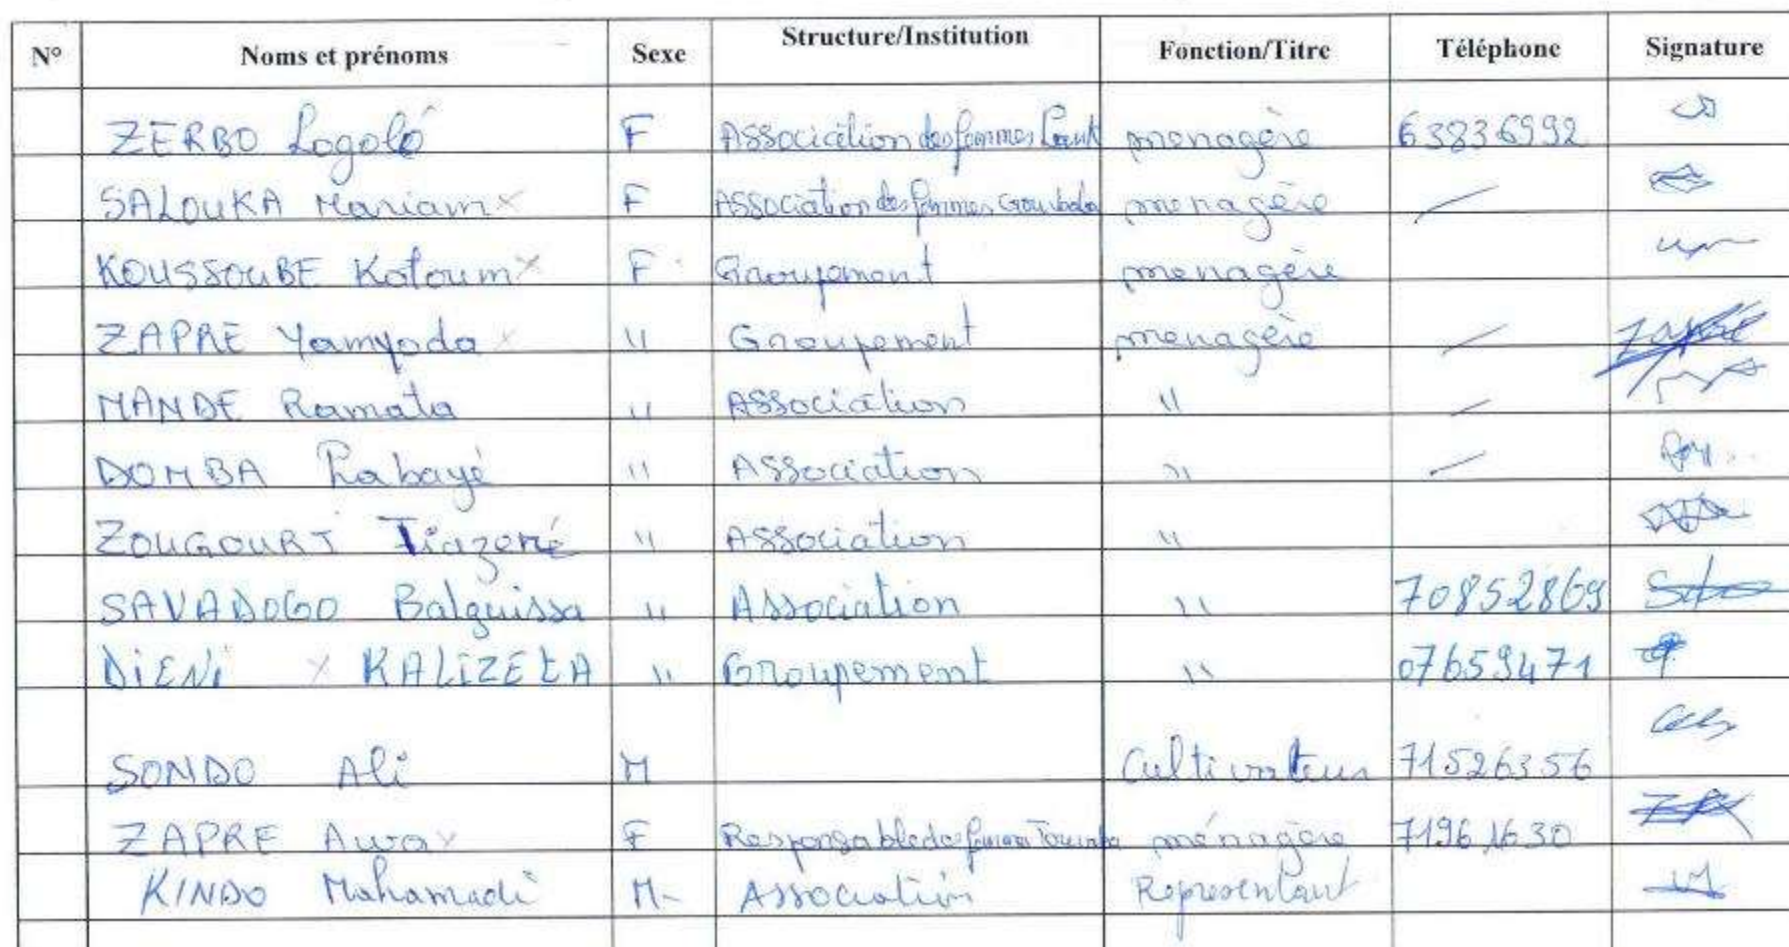 N° Noms et prénoms Sexe Structure/Institution Fonction/Titre Téléphone Signature
ZERBO Logoló F Association des femmes menagère 63836992
SALOUKA Mariam x F Association des femmes menagère /
KOUSSOUBE Kotoum x F Groupement menagère
ZAPRE Yamyoda x " Groupement menagère / Zapré
MANDE Ramata " Association " /
DOMBA Rabayé " Association " /
ZOUGOURI " Association "
SAVADOGO Balguissa " Association " 70852869
DiENi x KALiZEtA " Groupement " 07659471
SONDO Ali M Cultivateur 71526356
ZAPRE Awa x F Responsable des femmes ménagère 71961630
KINDO Mahamadi M- Association Representant